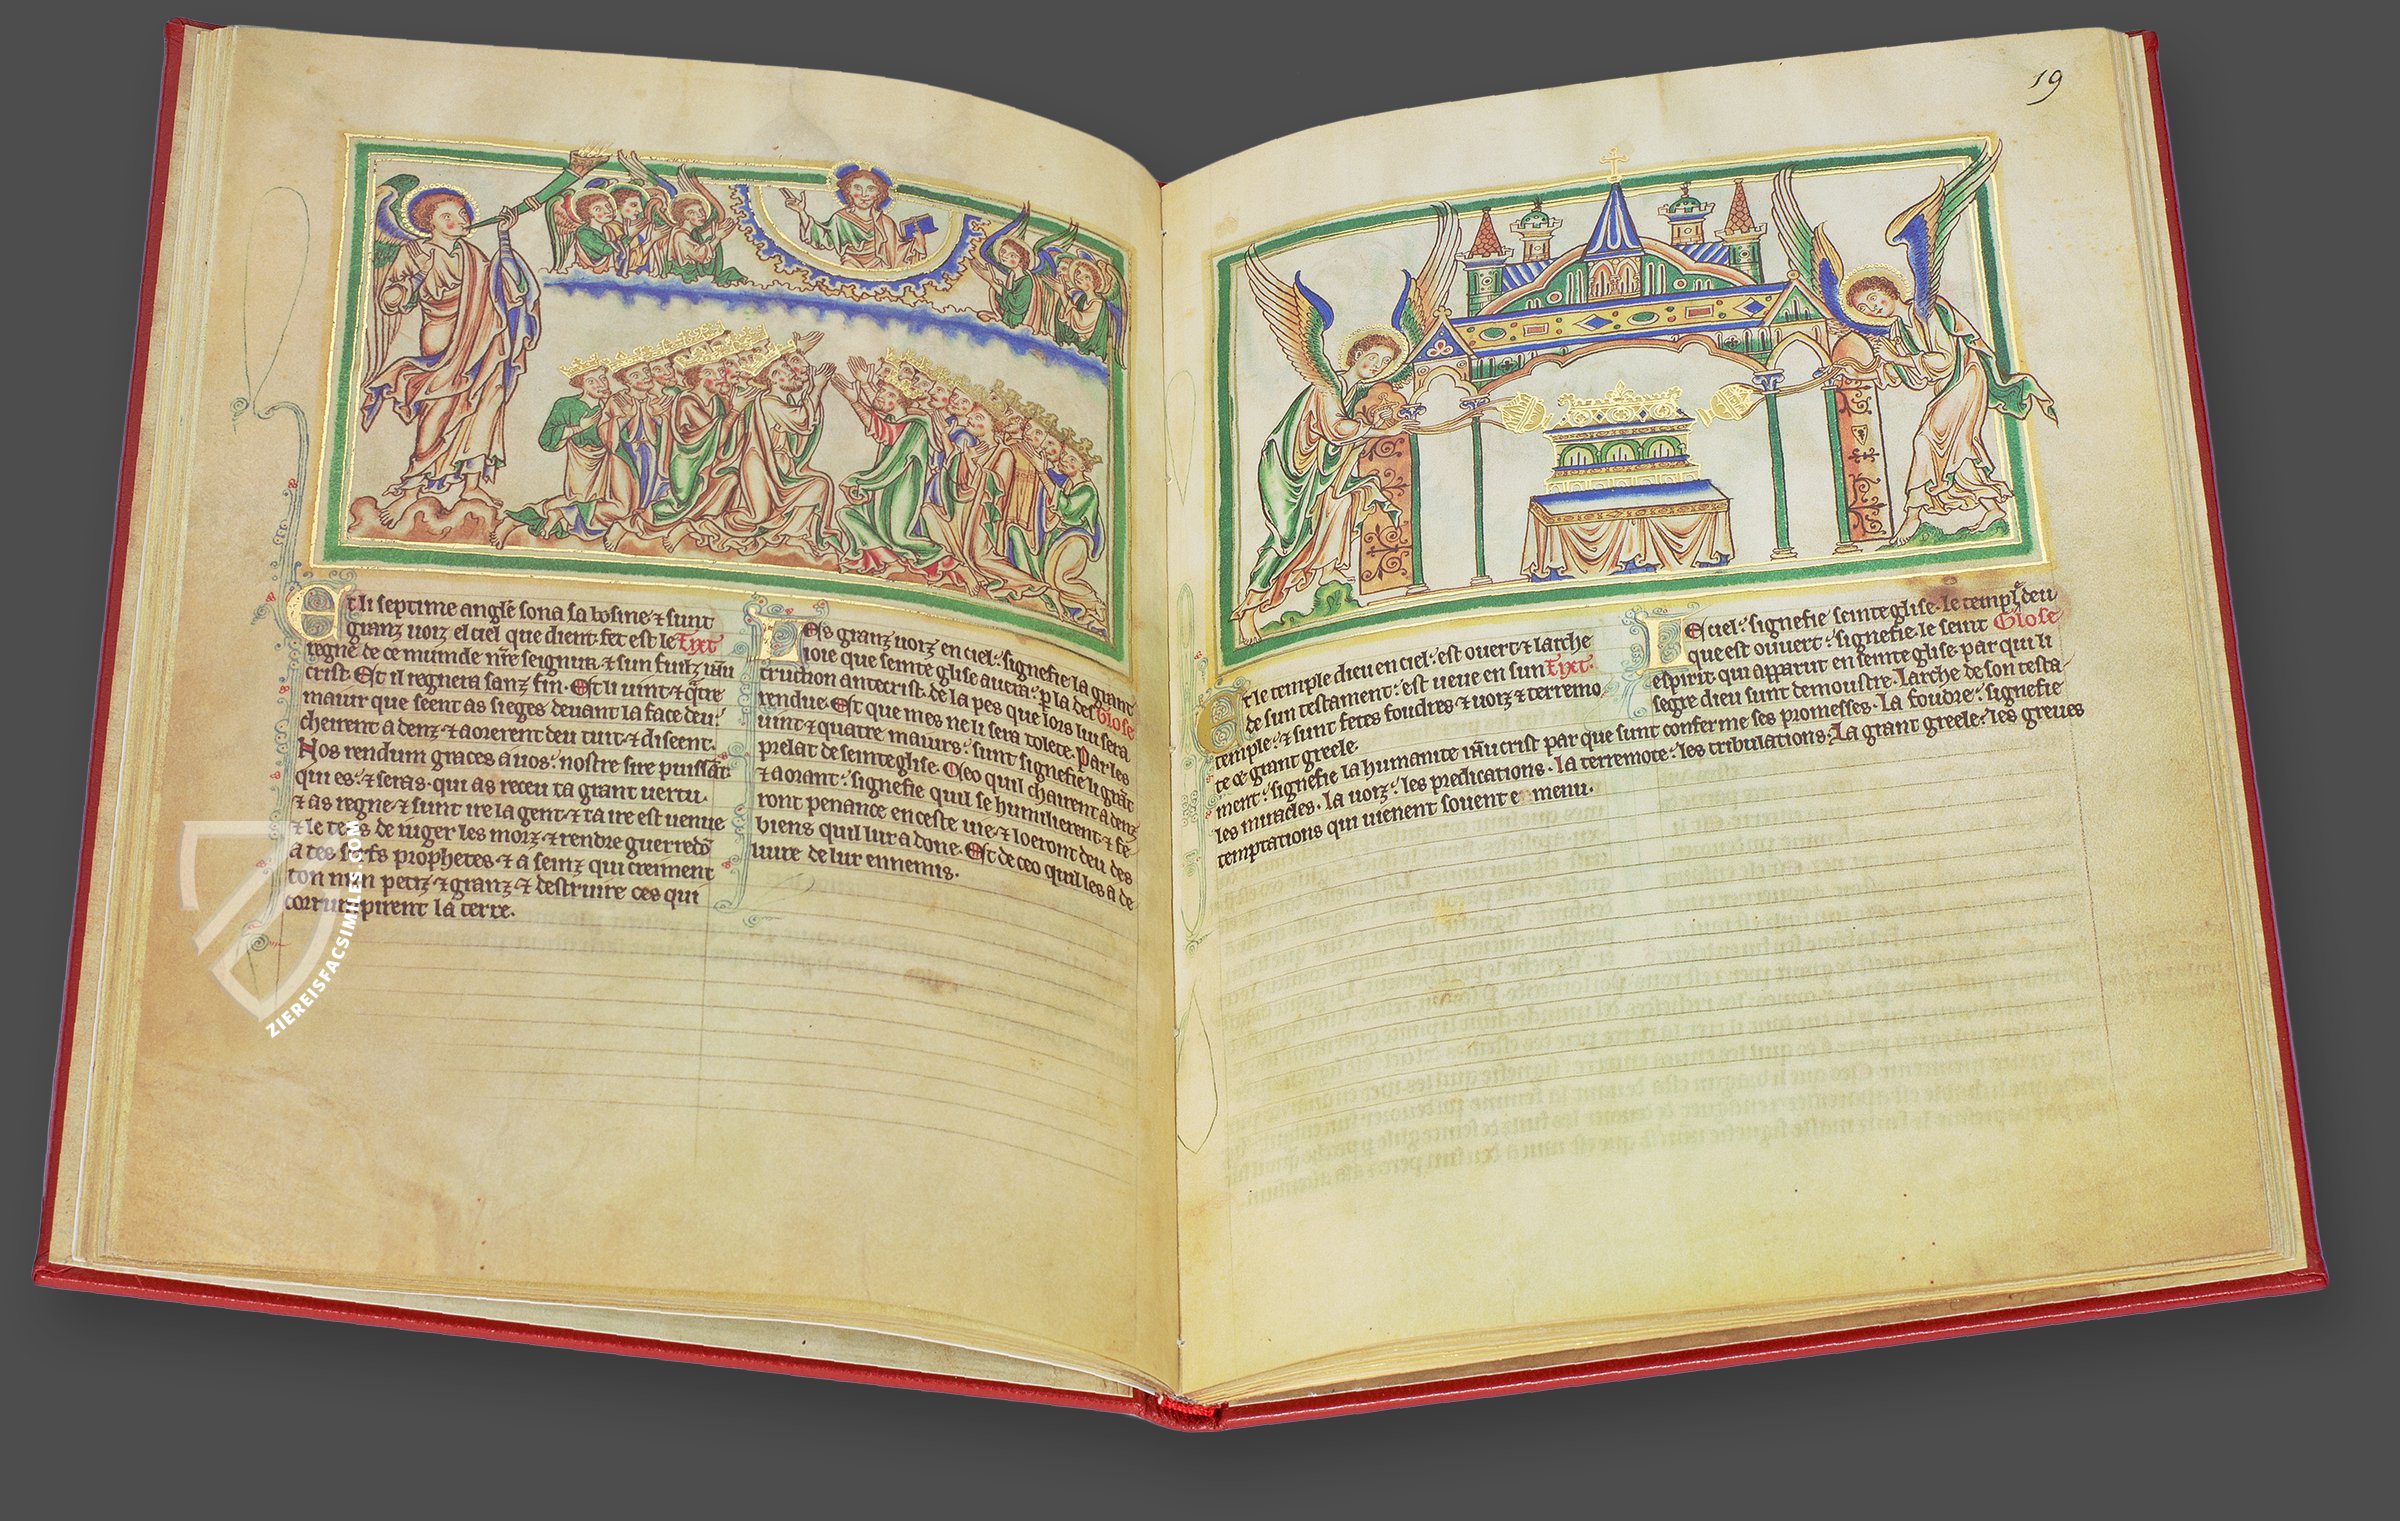 19
Et li septime angle sona sa bosine ⁊ sunt
granz uoiz el ciel que dient fet est le Tixt
regne de ce munde nr̄e seignur ⁊ sun fuiz iħu
crist. Est il regnera sanz fin. Est li uint ⁊ q̄tre
maiur que seent as sieges deuant la face deu:
cheirent a denz ⁊ aorerent deu tuit ⁊ diseent.
Nos rendum graces a uos: nostre sire puissāt
qui es: ⁊ seras. qui as receu ta grant uertu.
⁊ as regne ⁊ sunt ire la gent ⁊ ta ire est uenue
⁊ le tens de iuger les morz ⁊ rendre guerredō
a tes serfs prophetes ⁊ a seinz qui creiment
ton nun petiz ⁊ granz ⁊ destruire ces qui
corrumpirent la terre.
Les granz uoiz en ciel: signefie la grant
ioie que seinte glise auera: p la des Glose
truction antecrist. de la pes que lors lui sera
rendue. Est que mes ne li sera tolete. Par les
uint ⁊ quatre maiurs: sunt signefie li grāt
prelat de seinte glise. Oseo quil chaurent a denz
⁊ aorant: signefie quil se humilierent ⁊ fe
ront penance en ceste uie ⁊ loeront deu des
biens quil lur a done. Est de ceo quil les a de
liure de lur ennemis.
Et le temple dieu en ciel: est ouert ⁊ larche
de sun testament: est ueue en sun Tixt
temple: ⁊ sunt fetes foudres ⁊ uoiz ⁊ terremo
te ⁊ grant greele.
Le ciel: signefie seinte glise. Le temple deu
que est ouuert: signefie le seint Glose
espirit qui apparut en seinte glise par qui li
segre dieu sunt demoustre. Larche de son testa
ment: signefie la humanite iħu crist par que sunt conferme ses promesses. La foudre: signefie
les miracles. La uoiz: les predications. la terremote: les tribulations. La grant greele: les greues
temptations qui uienent souent menu.
ZIEREISFACSIMILES.COM